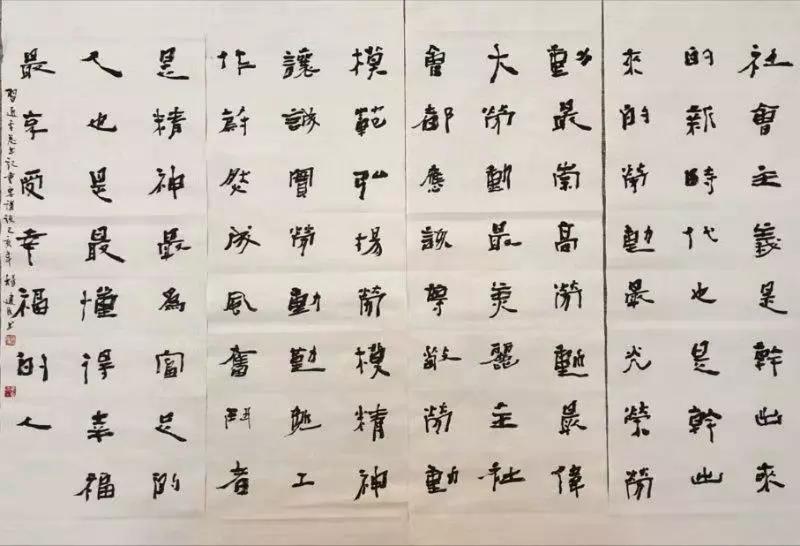 社會主義是幹出來
的新時代也是幹出
來的勞動最光榮勞
動最崇高勞動最偉
大勞動最美麗全社
會都應該尊敬勞動
模範弘揚勞模精神
讓誠實勞動勤勉工
作蔚然成風奮鬥者
是精神最為富足的
人也是最懂得幸福
最享受幸福的人
習近平总书记重要講話己亥年